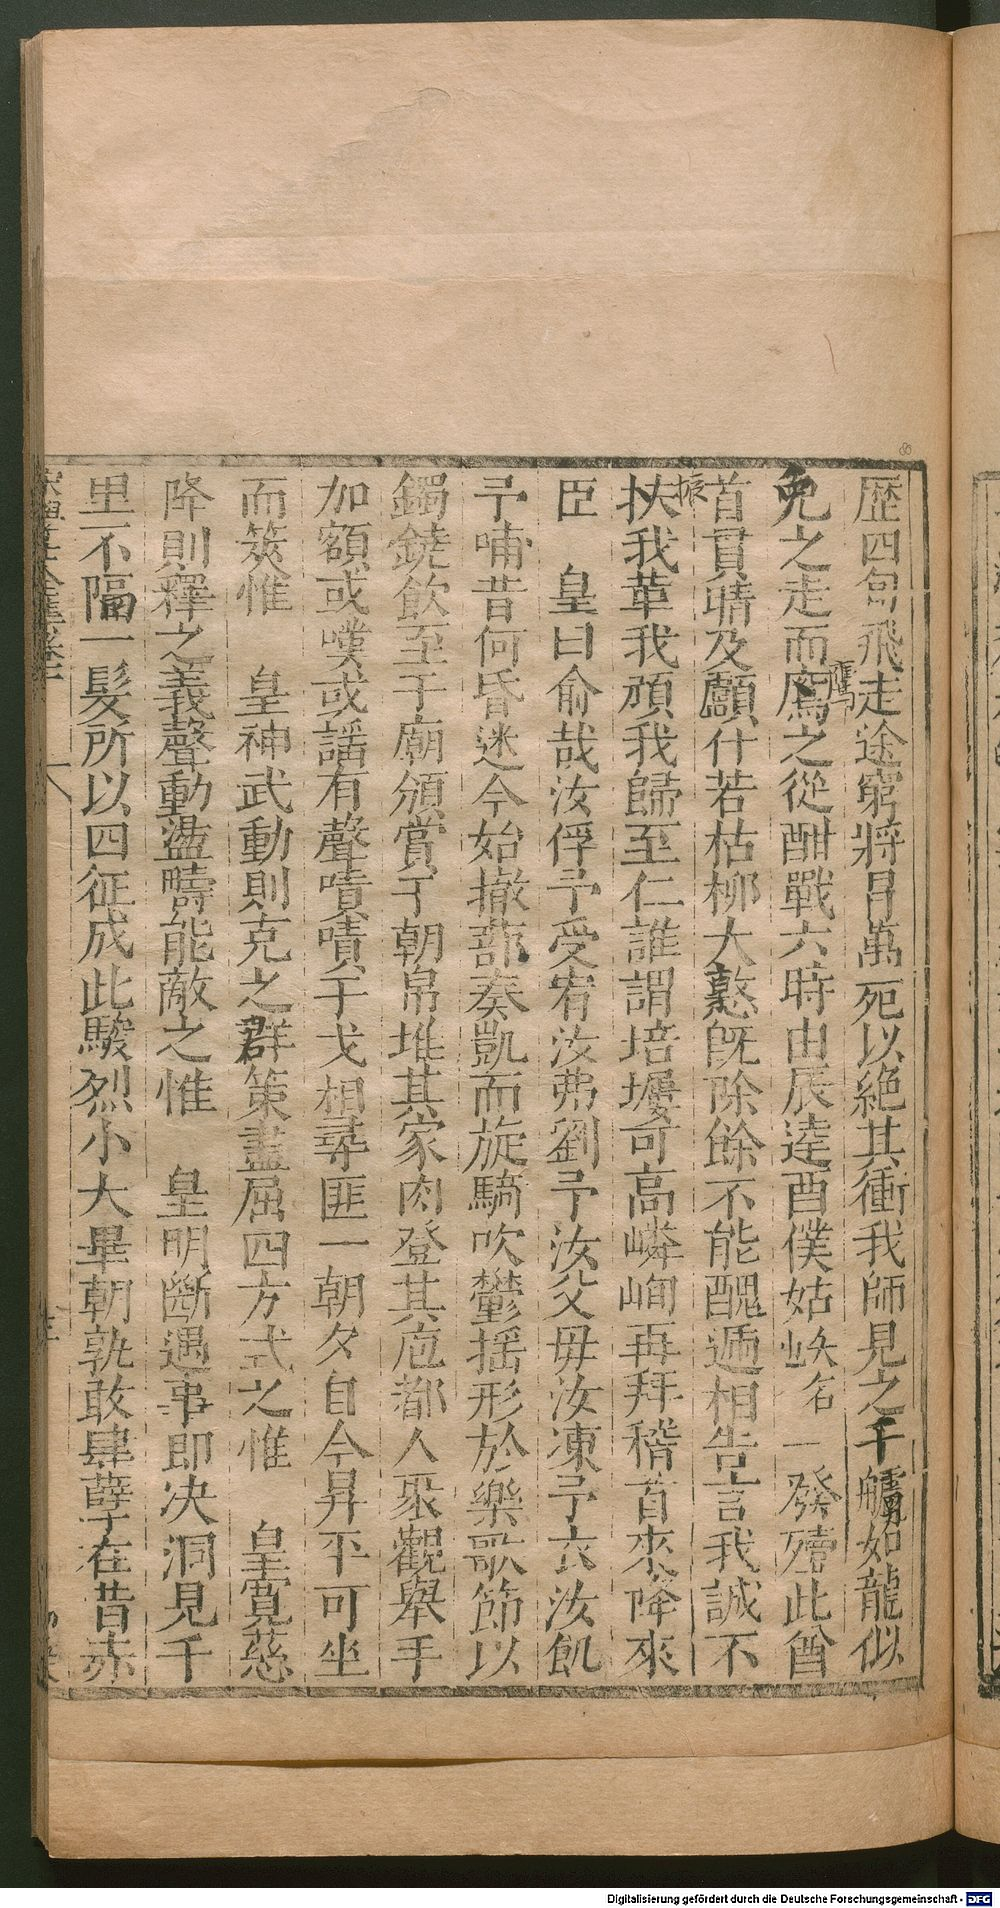 歷四旬飛走途窮將冒萬死以絕其衝我師見之千艫如龍似
兔之走而鷹之從酣戰六時由辰達酉僕姑峡名一發殪此酋
鷹
首貫睛及顱什若枯柳大憝旣除餘不能醜遁相告言我誠不
振
扶我革我頑我歸至仁誰謂培塿可高嶙峋再拜稽首來降來
臣　皇曰俞哉汝俘予受宥汝弗劉予汝父毋汝凍予衣汝飢
予哺昔何昏迷今始撤蔀奏凱而旋騎吹鬱搖形於樂歌節以
鐲鐃飲至于廟頒賞于朝帛堆其家肉登其庖都人聚觀舉手
加額或嘆或謡有聲嘖嘖干戈相尋匪一朝夕自今昇平可坐
而筴惟　皇神武動則克之群策盡屈四方式之惟　皇寬慈
降則釋之義聲動盪疇能敵之惟　皇明斷遇事卽决洞見千
里不隔一髮所以四征成此駿烈小大畢朝孰敢肆孽在昔赤
Digitalisierung gefördert durch die Deutsche Forschungsgemeinschaft - DFG